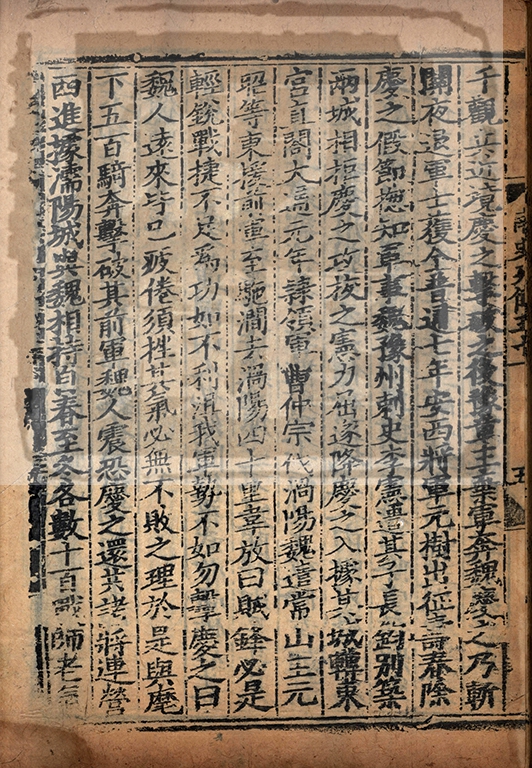 千觀兵近境慶之擊破之後豫章王棄軍奔魏慶之乃斬
關夜退軍士復全普通七年安西將軍元樹出征壽春除
慶之假節摠知軍事魏豫州刺史李憲遣其子長鈞別築
兩城相拒慶之攻拔之憲力屈遂降慶之入據其城轉東
宮直閣大通元年隸領軍曹仲宗伐渦陽魏遣常山王元
昭等東援前軍至駞澗去渦陽四十里韋放曰賊鋒必是
輕銳戰捷不足爲功如不利沮我軍勢不如勿擊慶之曰
魏人遠來皆已疲倦須挫其氣必無不敗之理於是與麾
下五百騎奔擊破其前軍魏人震恐慶之還共諸將連營
西進據濡陽城與魏相持自春至冬各數十百戰師老氣